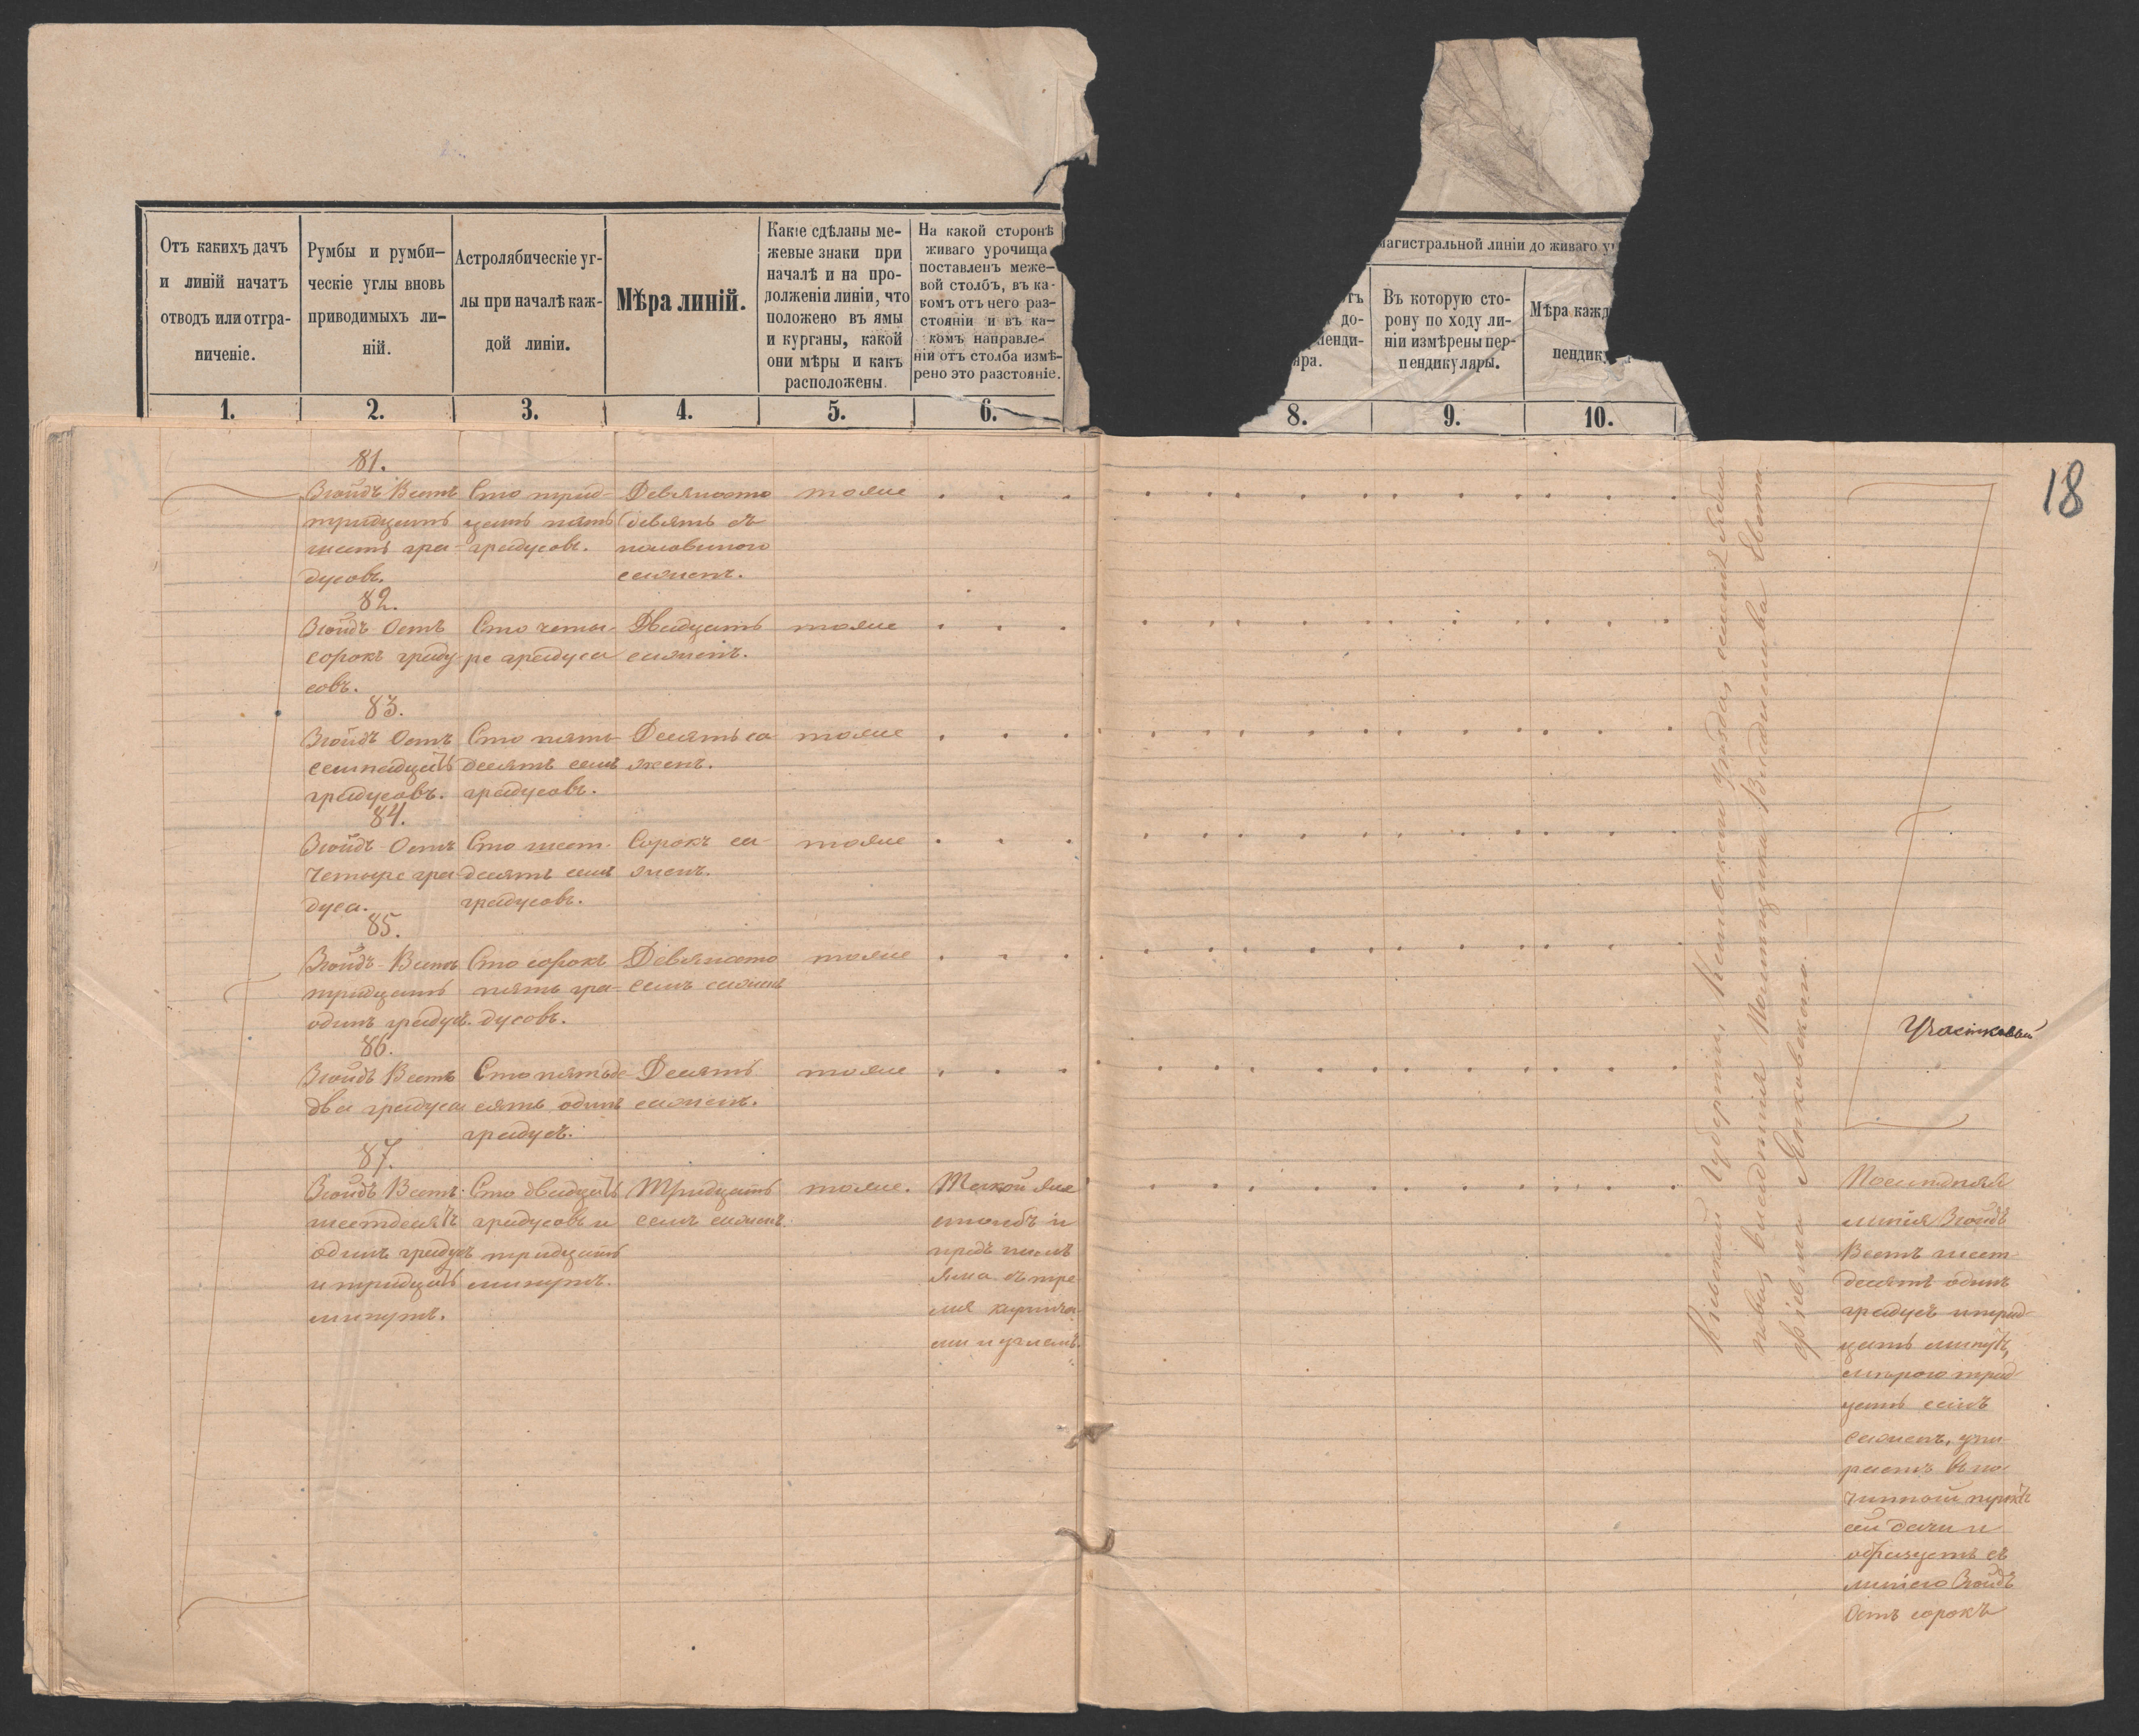 Отъ какихъ дачъ
и линій начатъ
отводъ или отгра-
ниченіе.
Румбы и румби-
ческіе углы вновь
приводимыхъ ли-
ній.
Астролябическіе уг-
лы при началѣ каж-
дой линіи.
Мѣра линій.
Какіе сдѣланы ме-
жевые знаки при
началѣ и на про-
долженіи линіи, что
положено въ ямы
и курганы, какой
они мѣры и какъ
расположены.
На какой сторонѣ
живаго урочища
поставленъ меже-
вой столбъ, въ ка-
комъ отъ него раз-
стояніи и въ ка-
комъ направле-
ніи отъ столба измѣ-
рено это разстояніе.
магистральной линіи до живаго
до-
пенди-
яра.
Въ которую сто-
рону по ходу ли-
ніи измѣрены пер-
пендикуляры.
Мѣра кажд
пендик
1. 2. 3. 4. 5. 6. 8. 9. 10.
18
81.
Зюйдъ Вестъ
тридцать
шесть гра-
дусовъ.
Сто трид-
цать пять
градусовъ.
Девяносто
девять съ
половиною
сажень.
тоже
82.
Зюйдъ Остъ
сорокъ граду-
совъ.
Сто четы-
ре градуса
Двадцать
сажень.
тоже
83.
Зюйдъ Остъ
семнадцать
градусовъ.
Сто пять-
десять семь
градусовъ.
Десять са-
жень.
тоже
84.
Зюйдъ Остъ
четыре гра-
дуса.
Сто шест-
десять семь
градусовъ.
Сорокъ са-
жень.
тоже
85.
Зюйдъ Вестъ
тридцать
одинъ градусъ.
Сто сорокъ
пять гра-
дусовъ.
Девяносто
семь сажень
тоже
86.
Зюйдъ Вестъ
два градуса
Сто пятьде-
сять одинъ
градусъ.
Десять
сажень.
тоже
87.
Зюйдъ Вестъ
шестдесятъ
одинъ градусъ
и тридцать
минутъ.
Сто двадцать
градусовъ и
тридцать
минутъ.
Тридцать
семь сажень
тоже.
Такой же
столбъ и
предъ нимъ
яма съ тре
мя кирпича
ми и углемъ.
Кіевской Губерніи, Каневскаго Уѣзда,
владѣнія Помѣщика Владислава
Янковскаго.
Участковый
Послѣдняя
линія Зюйдъ
Вестъ шест
десять одинъ
градусъ и трид-
цать минутъ,
мѣрою трид-
цать семь
сажень, упи-
раетъ въ по-
чинной пунктъ
сей дачи и
образуетъ съ
линіею Зюйдъ
Остъ сорокъ